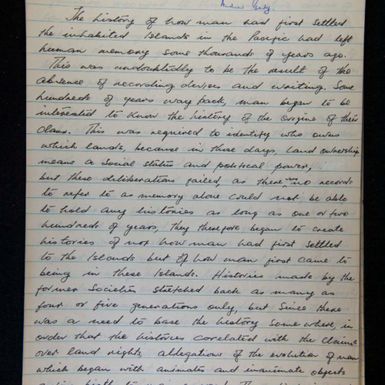 The history of how man had first settled
the inhabited Islands in the Pacific had left
human memory some thousands of years ago.
This was undoubtedly to be the result of the
absence of recording devices and writing. Some
hundreds of years way back, man began to be
interested to know the history of the origine of their
clans. This was required to identify who owns
which lands, because in those days, land ownership
means a social status and political power,
but these deliberations failed, as there was no records
to refer to as memory alone could not be able
to hold any histories as long as one or two
hundreds of years, they therefore began to create
histories of not how man had first settled
to the Islands but of how man first came to
being in these Islands. Histories made by the
former Societies stretched back as many as
four or five generations only, but since there
was a need to base the history somewhere, in
order that the histories correlated with the claims
over land rights, allegations of the evolution of man
which began with animates and inanimate objects